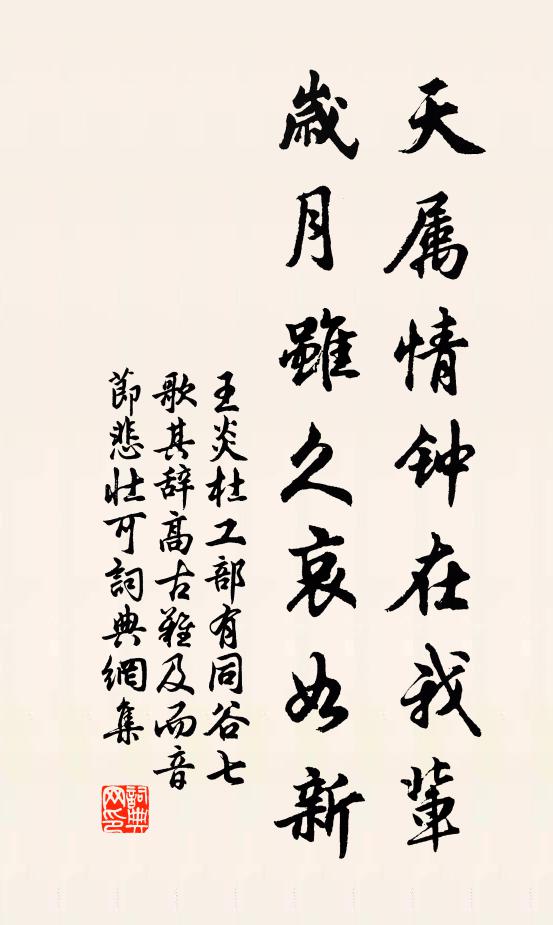 天属情钟在我輩
歲月雖久哀如新
王炎杜工部有同谷七
歌其辞高古難及而音
節悲壮可詞典網集
詞典网印